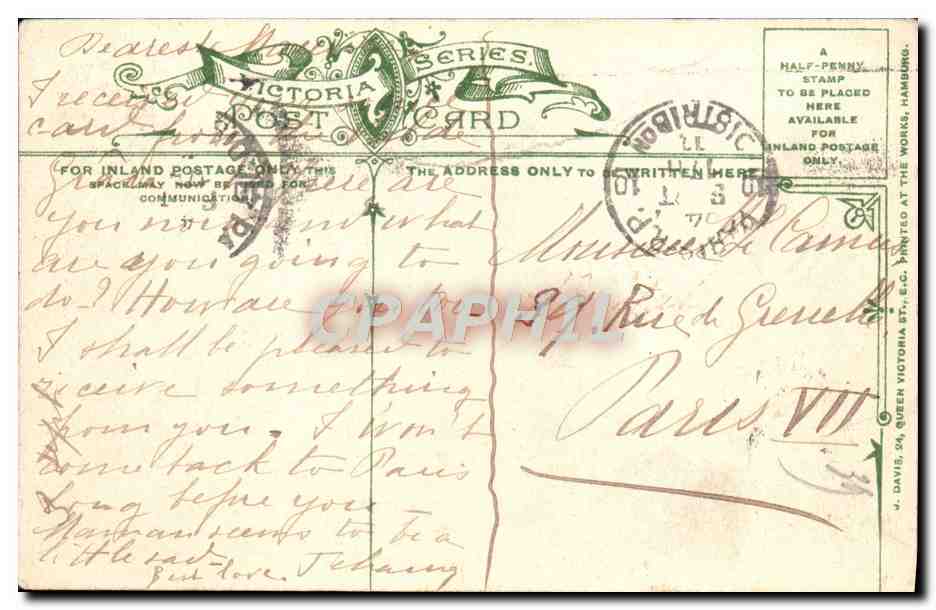 VICTORIA SERIES.
POST CARD
A
HALF-PENNY
STAMP
TO BE PLACED
HERE
AVAILABLE
FOR
INLAND POSTAGE
ONLY.
FOR INLAND POSTAGE ONLY THIS
SPACE MAY NOW BE USED FOR
COMMUNICATION.
THE ADDRESS ONLY TO BE WRITTEN HERE
J. DAVIS, 24, QUEEN VICTORIA ST., E.C. PRINTED AT THE WORKS, HAMBURG.
DISTRIBON
10
CPAPHIL
Dearest
I receive
card from
are
you now and what
are you going to
do? How are you
I shall be pleased to
receive something
from you. I won't
come back to Paris
long before you
Maman seems to be a
little sad.
Best love.
Monsieur Le Camus
Rue de Grenelle
Paris VII